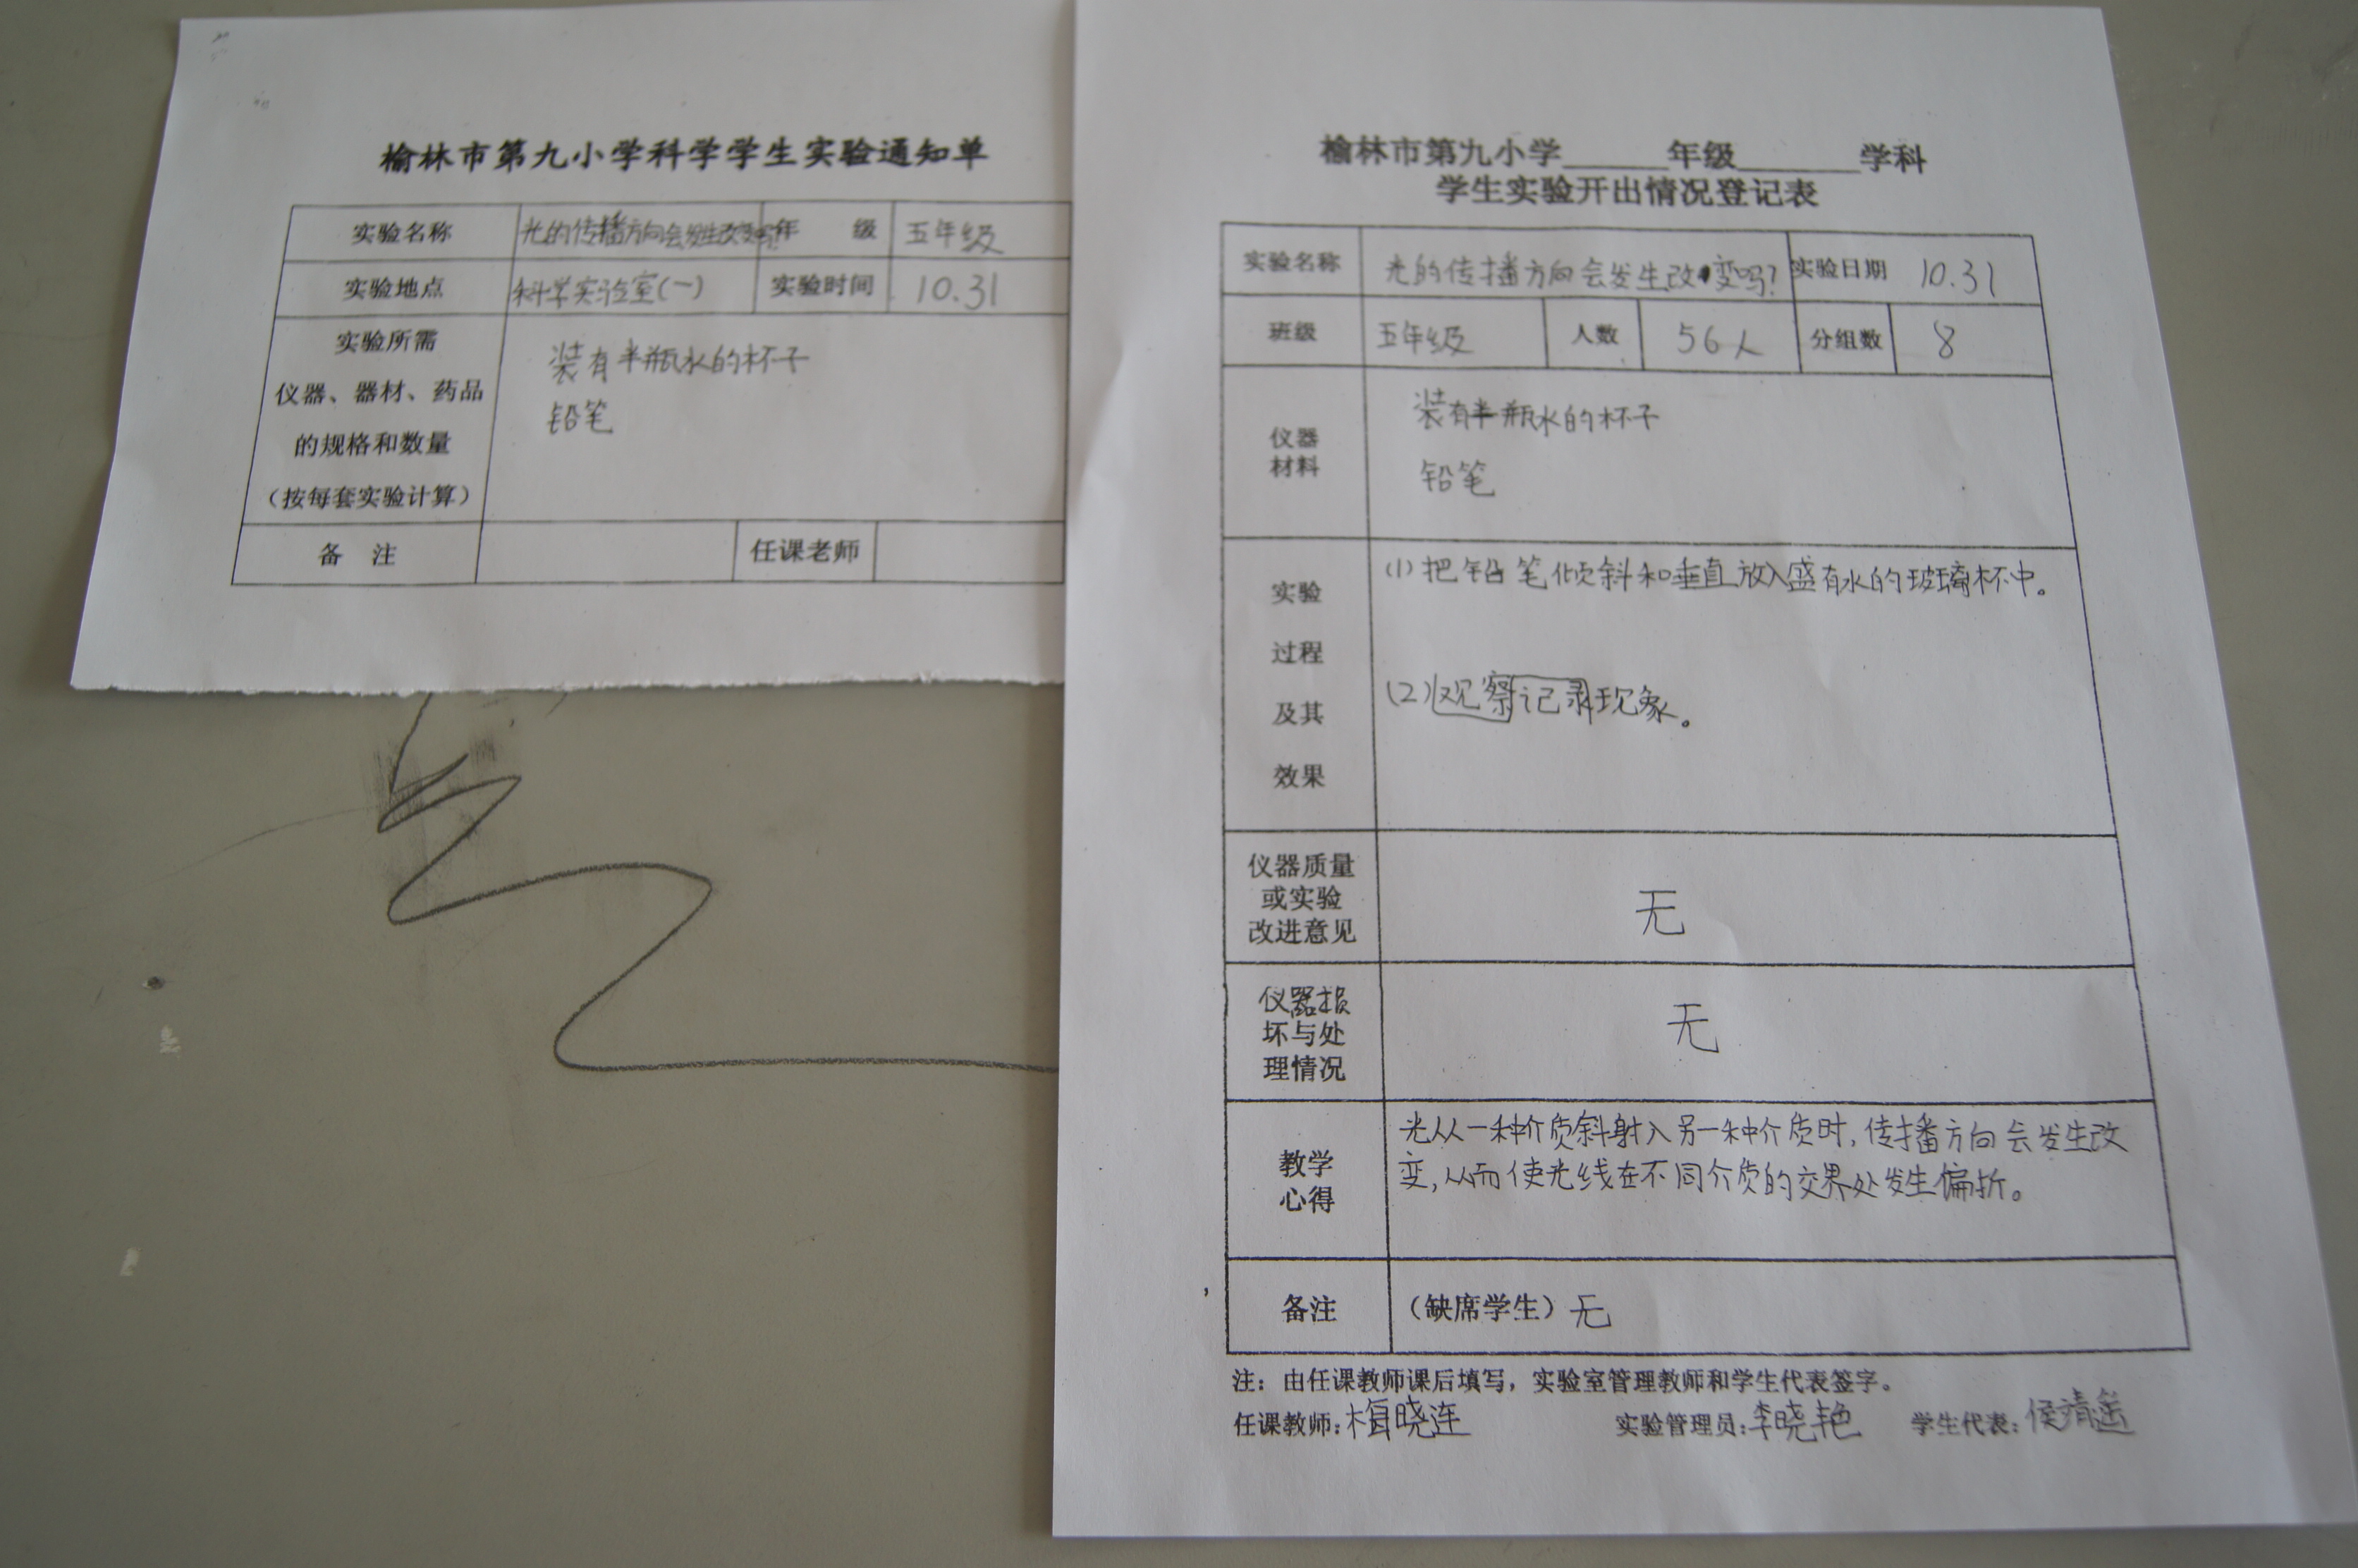 榆林市第九小学科学学生实验通知单
实验名称 光的传播方向会发生改变吗? 年 级 五年级
实验地点 科学实验室(一) 实验时间 10.31
实验所需
仪器、器材、药品
的规格和数量
(按每套实验计算)
装有半瓶水的杯子
铅笔
备 注 任课老师
榆林市第九小学______年级_______学科
学生实验开出情况登记表
实验名称 光的传播方向会发生改变吗? 实验日期 10.31
班级 五年级 人数 56人 分组数 8
仪器
材料
装有半瓶水的杯子
铅笔
实验
过程
及其
效果
(1)把铅笔倾斜和垂直放入盛有水的玻璃杯中。
(2)观察记录现象。
仪器质量
或实验
改进意见
无
仪器损
坏与处
理情况
无
教学
心得
光从一种介质斜射入另一种介质时,传播方向会发生改
变,从而使光线在不同介质的交界处发生偏折。
备注 (缺席学生)无
注:由任课教师课后填写,实验室管理教师和学生代表签字。
任课教师:梅晓连 实验管理员:李晓艳 学生代表:侯靖遥